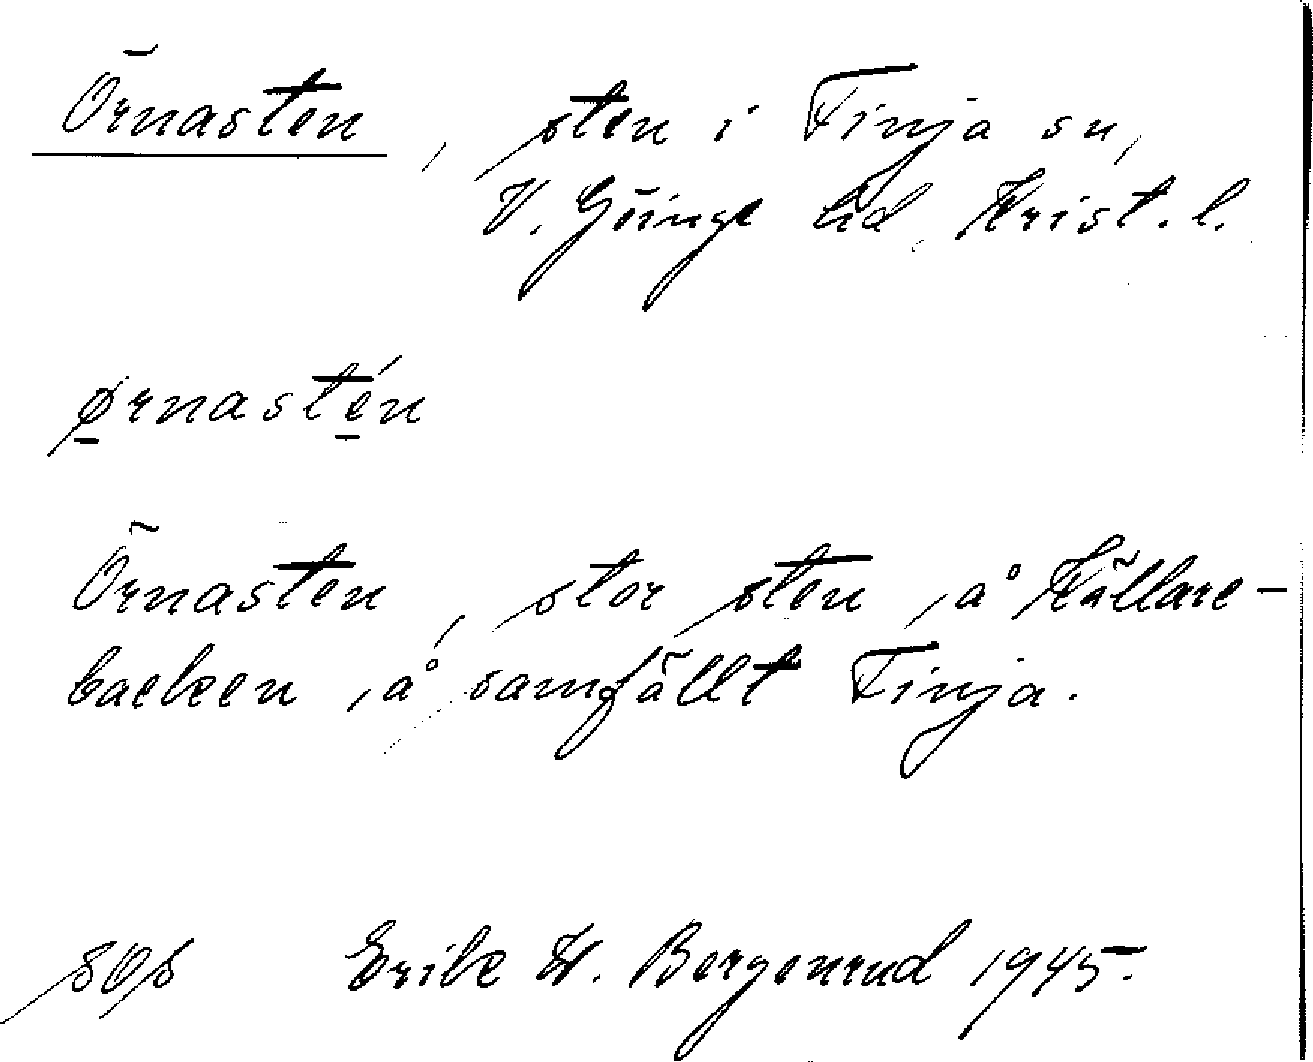 Örnasten, sten i Finja sn,
V. Göinge hd, Krist. l.
ørnastén
Örnasten, stor sten, å Källare-
backen, å samfällt Finja.
Erik W. Bergenrud 1945.